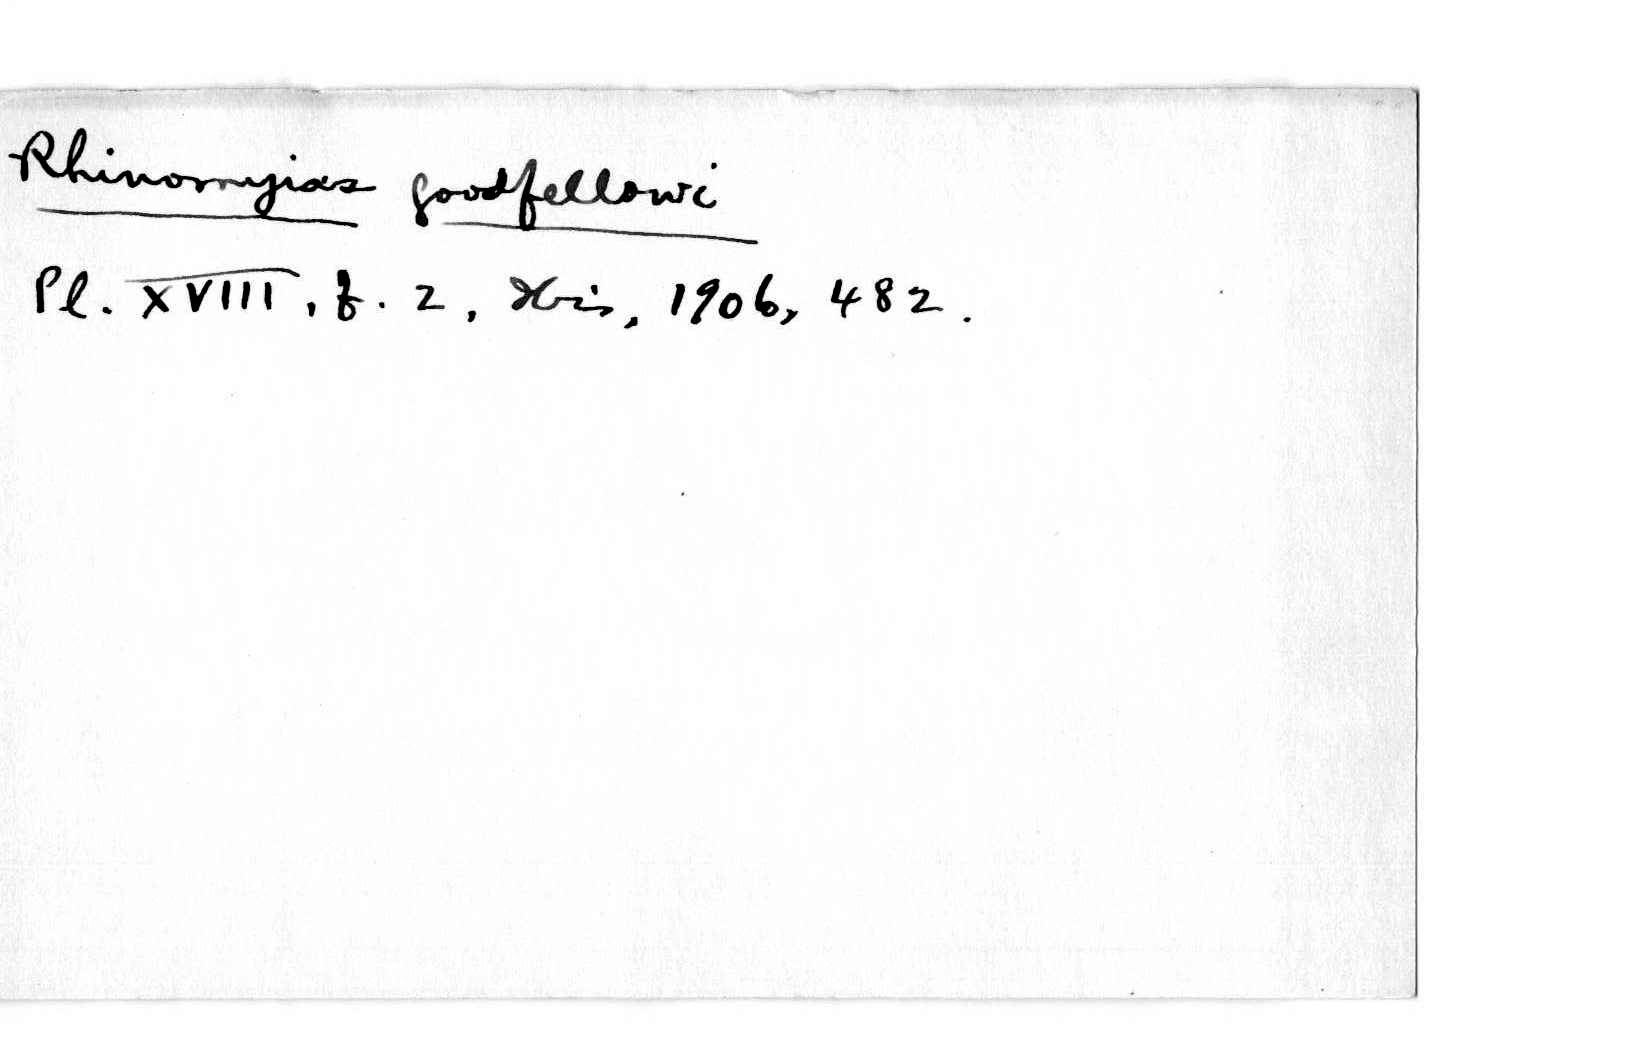 Rhinomyias goodfellowi
Pl. XVIII, f. 2, Ibis, 1906, 482.